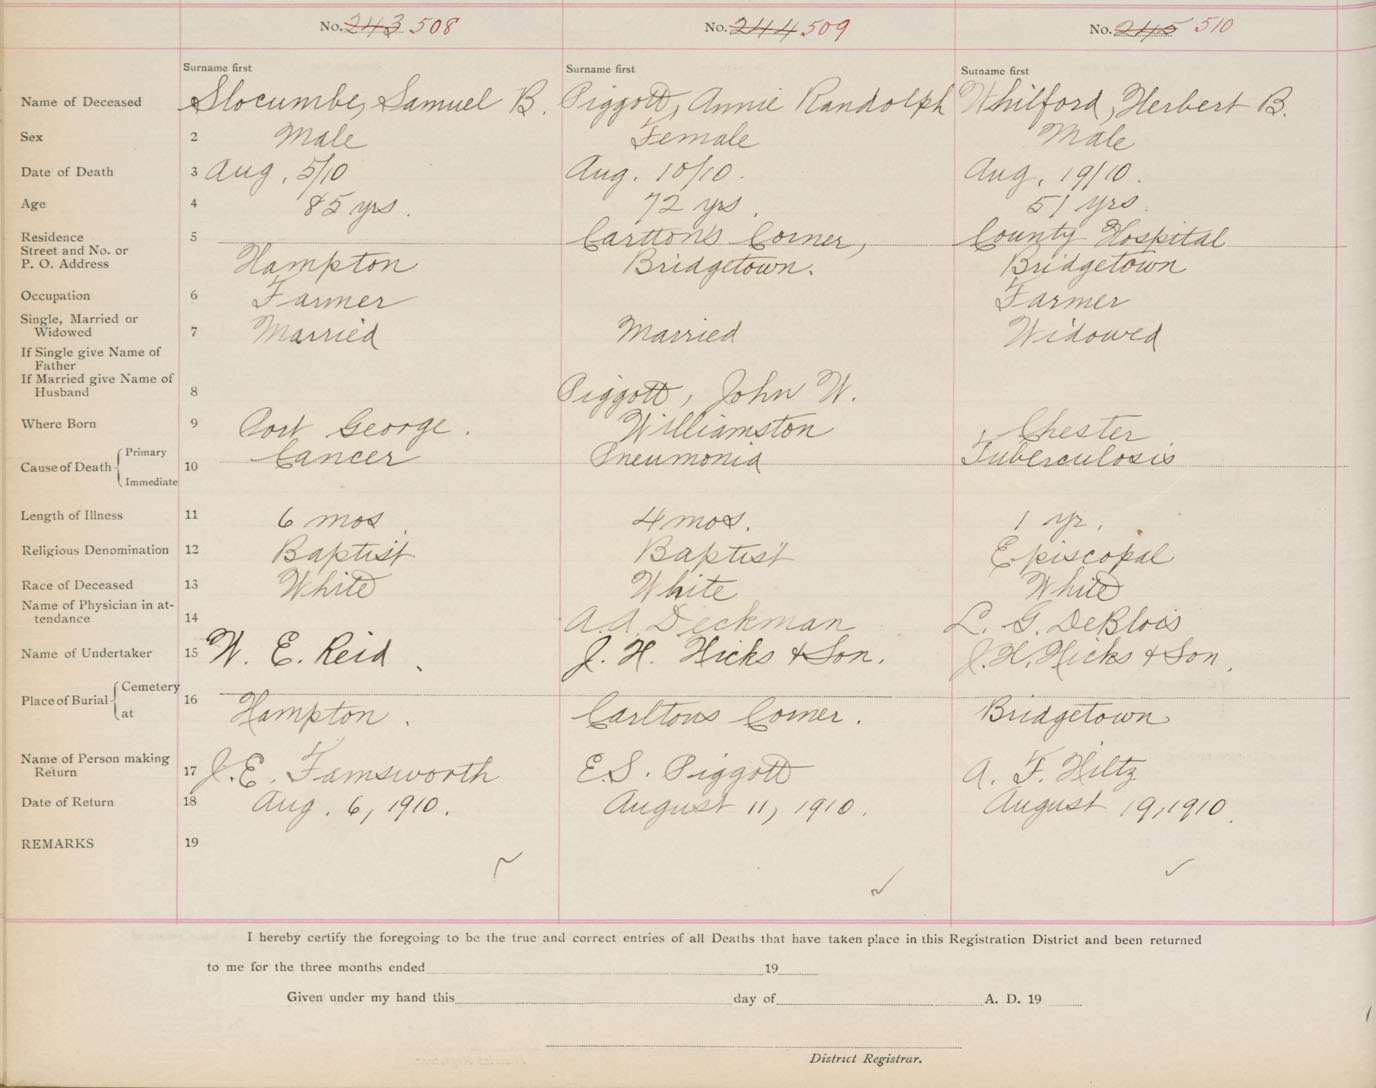 No. 243 508 No. 244 509 No. 245 510
Surname first Surname first Surname first
Name of Deceased Slocumbe, Samuel B. Piggott, Annie Randolph Whilford, Herbert B.
Sex 2 Male Female Male
Date of Death 3 Aug. 5/10 Aug. 10/10. Aug. 19/10.
Age 4 85 yrs. 72 yrs. 51 yrs.
Residence 5 Carlton's Corner, County Hospital
Street and No. or
P. O. Address Hampton Bridgetown. Bridgetown
Occupation 6 Farmer Farmer
Single, Married or
Widowed 7 Married Married Widowed
If Single give Name of
Father
If Married give Name of
Husband 8 Piggott, John W.
Where Born 9 Port George. Williamston Chester
Cause of Death Primary 10 Cancer Pneumonia Tuberculosis
Immediate
Length of Illness 11 6 mos. 4 mos. 1 yr.
Religious Denomination 12 Baptist Baptist Episcopal
Race of Deceased 13 White White White
Name of Physician in at-
tendance 14 A. A. Deckman L. G. DeBlois
Name of Undertaker 15 W. E. Reid. J. H. Hicks & Son. J. H. Hicks & Son.
Place of Burial Cemetery 16
at Hampton. Carltons Corner. Bridgetown
Name of Person making
Return 17 J. E. Farnsworth E. S. Piggott A. F. Hiltz
Date of Return 18 Aug. 6, 1910. August 11, 1910. August 19, 1910.
REMARKS 19
I hereby certify the foregoing to be the true and correct entries of all Deaths that have taken place in this Registration District and been returned
to me for the three months ended 19
Given under my hand this day of A. D. 19
District Registrar.